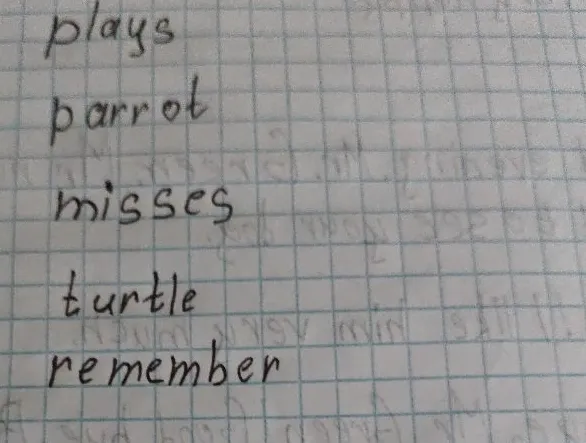 plays
parrot
misses
turtle
remember